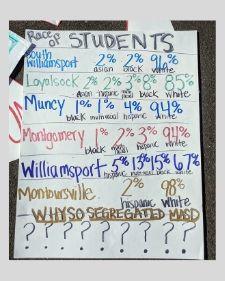 Race of STUDENTS
South
Williamsport 2% 2% 96%
asian black white
Loyalsock 2% 2% 3% 8% 85%
asian hispanic multi racial black white
Muncy 1% 1% 4% 94%
black multiracial hispanic white
Montgomery 1% 2% 3% 94%
black multi racial hispanic white
Williamsport 5% 13% 15% 67%
hispanic multiracial black white
Montoursville 2% 98%
hispanic white
WHY SO SEGREGATED MASD
? ? ? ? ? ? ? ? ?